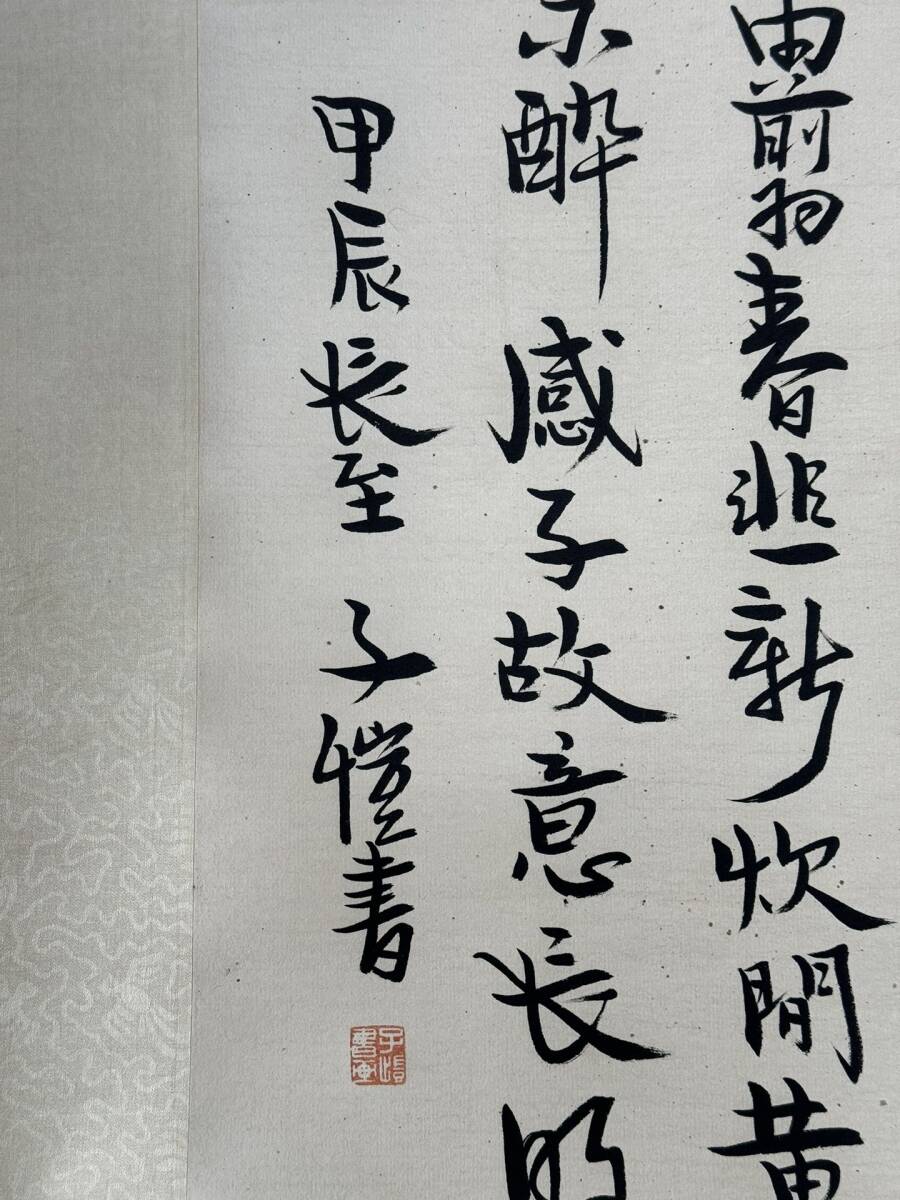 雨翦春韭新炊間黄
亦醉感子故意長明
甲辰長至 子愷書
子愷書畫